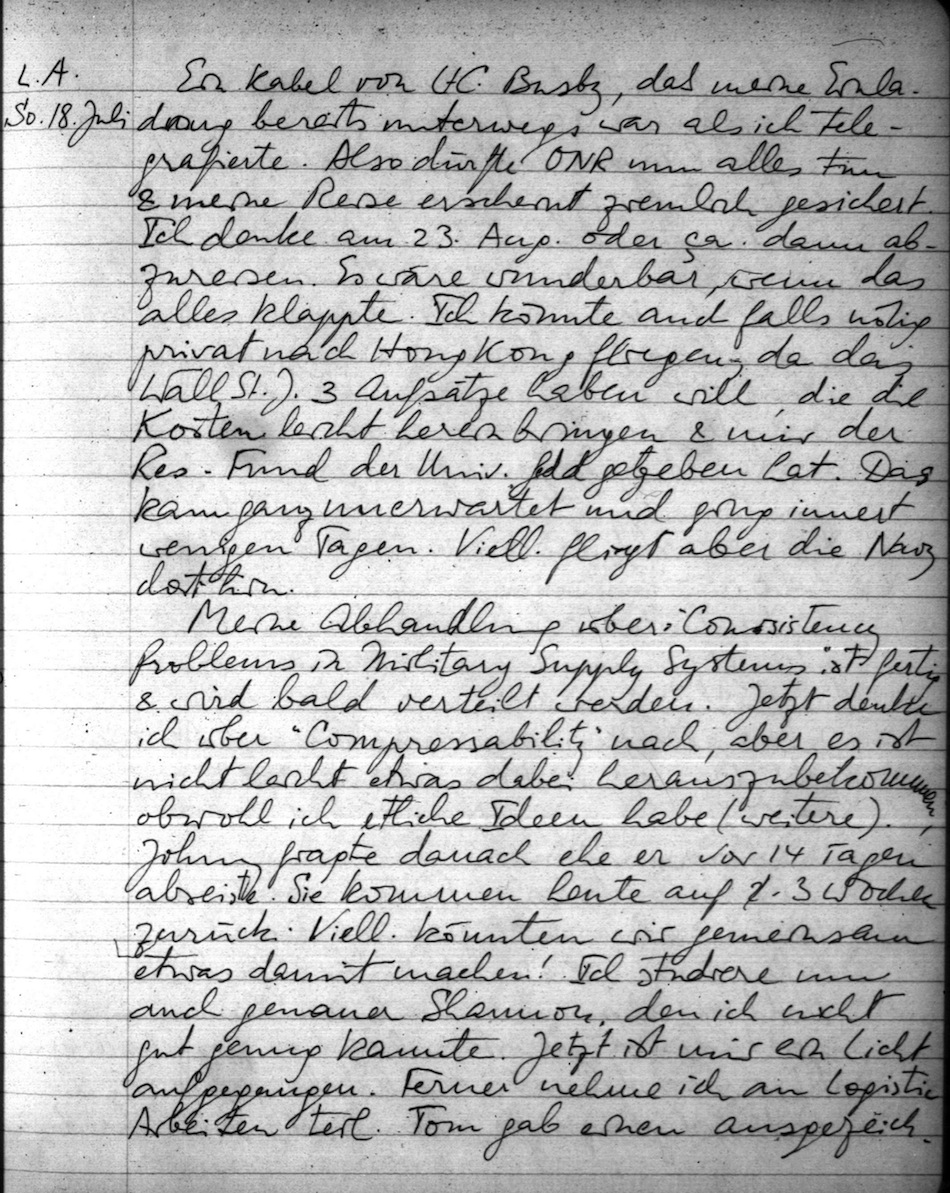 L.A.
So. 18. Juli
Ein Kabel von HC. Busby, dass meine Einla-
dung bereits unterwegs war als ich tele-
grafierte. Also dürfte ONR nun alles tun
& meine Reise erscheint ziemlich gesichert.
Ich denke am 23. Aug. oder ça. dann ab-
zureisen. Es wäre wunderbar, wenn das
alles klappte. Ich könnte auch falls nötig
privat nach Hong Kong fliegen, da das
Wall St. J. 3 Aufsätze haben will, die die
Kosten leicht herein bringen & mir der
Res. Fund der Univ. Geld gegeben hat. Das
kam ganz unerwartet und ging innert
wenigen Tagen. Viell. fliegt aber die Navy
dorthin.
Meine Abhandlung über: "Consistency
Problems in Military Supply Systems" ist fertig
& wird bald verteilt werden. Jetzt denke
ich über "Compressability" nach, aber es ist
nicht leicht etwas dabei herauszubekommen,
obwohl ich etliche Ideen habe (weitere).
Johnny fragte danach ehe er vor 14 Tagen
abreiste. Sie kommen heute auf 2-3 Wochen
zurück. Viell. könnten wir gemeinsam
etwas damit machen! Ich studiere nun
auch genauer Shannon, den ich nicht
gut genug kannte. Jetzt ist mir ein Licht
aufgegangen. Ferner nehme ich an Logistic
Arbeiten teil. Tom gab einen ausgezeich-